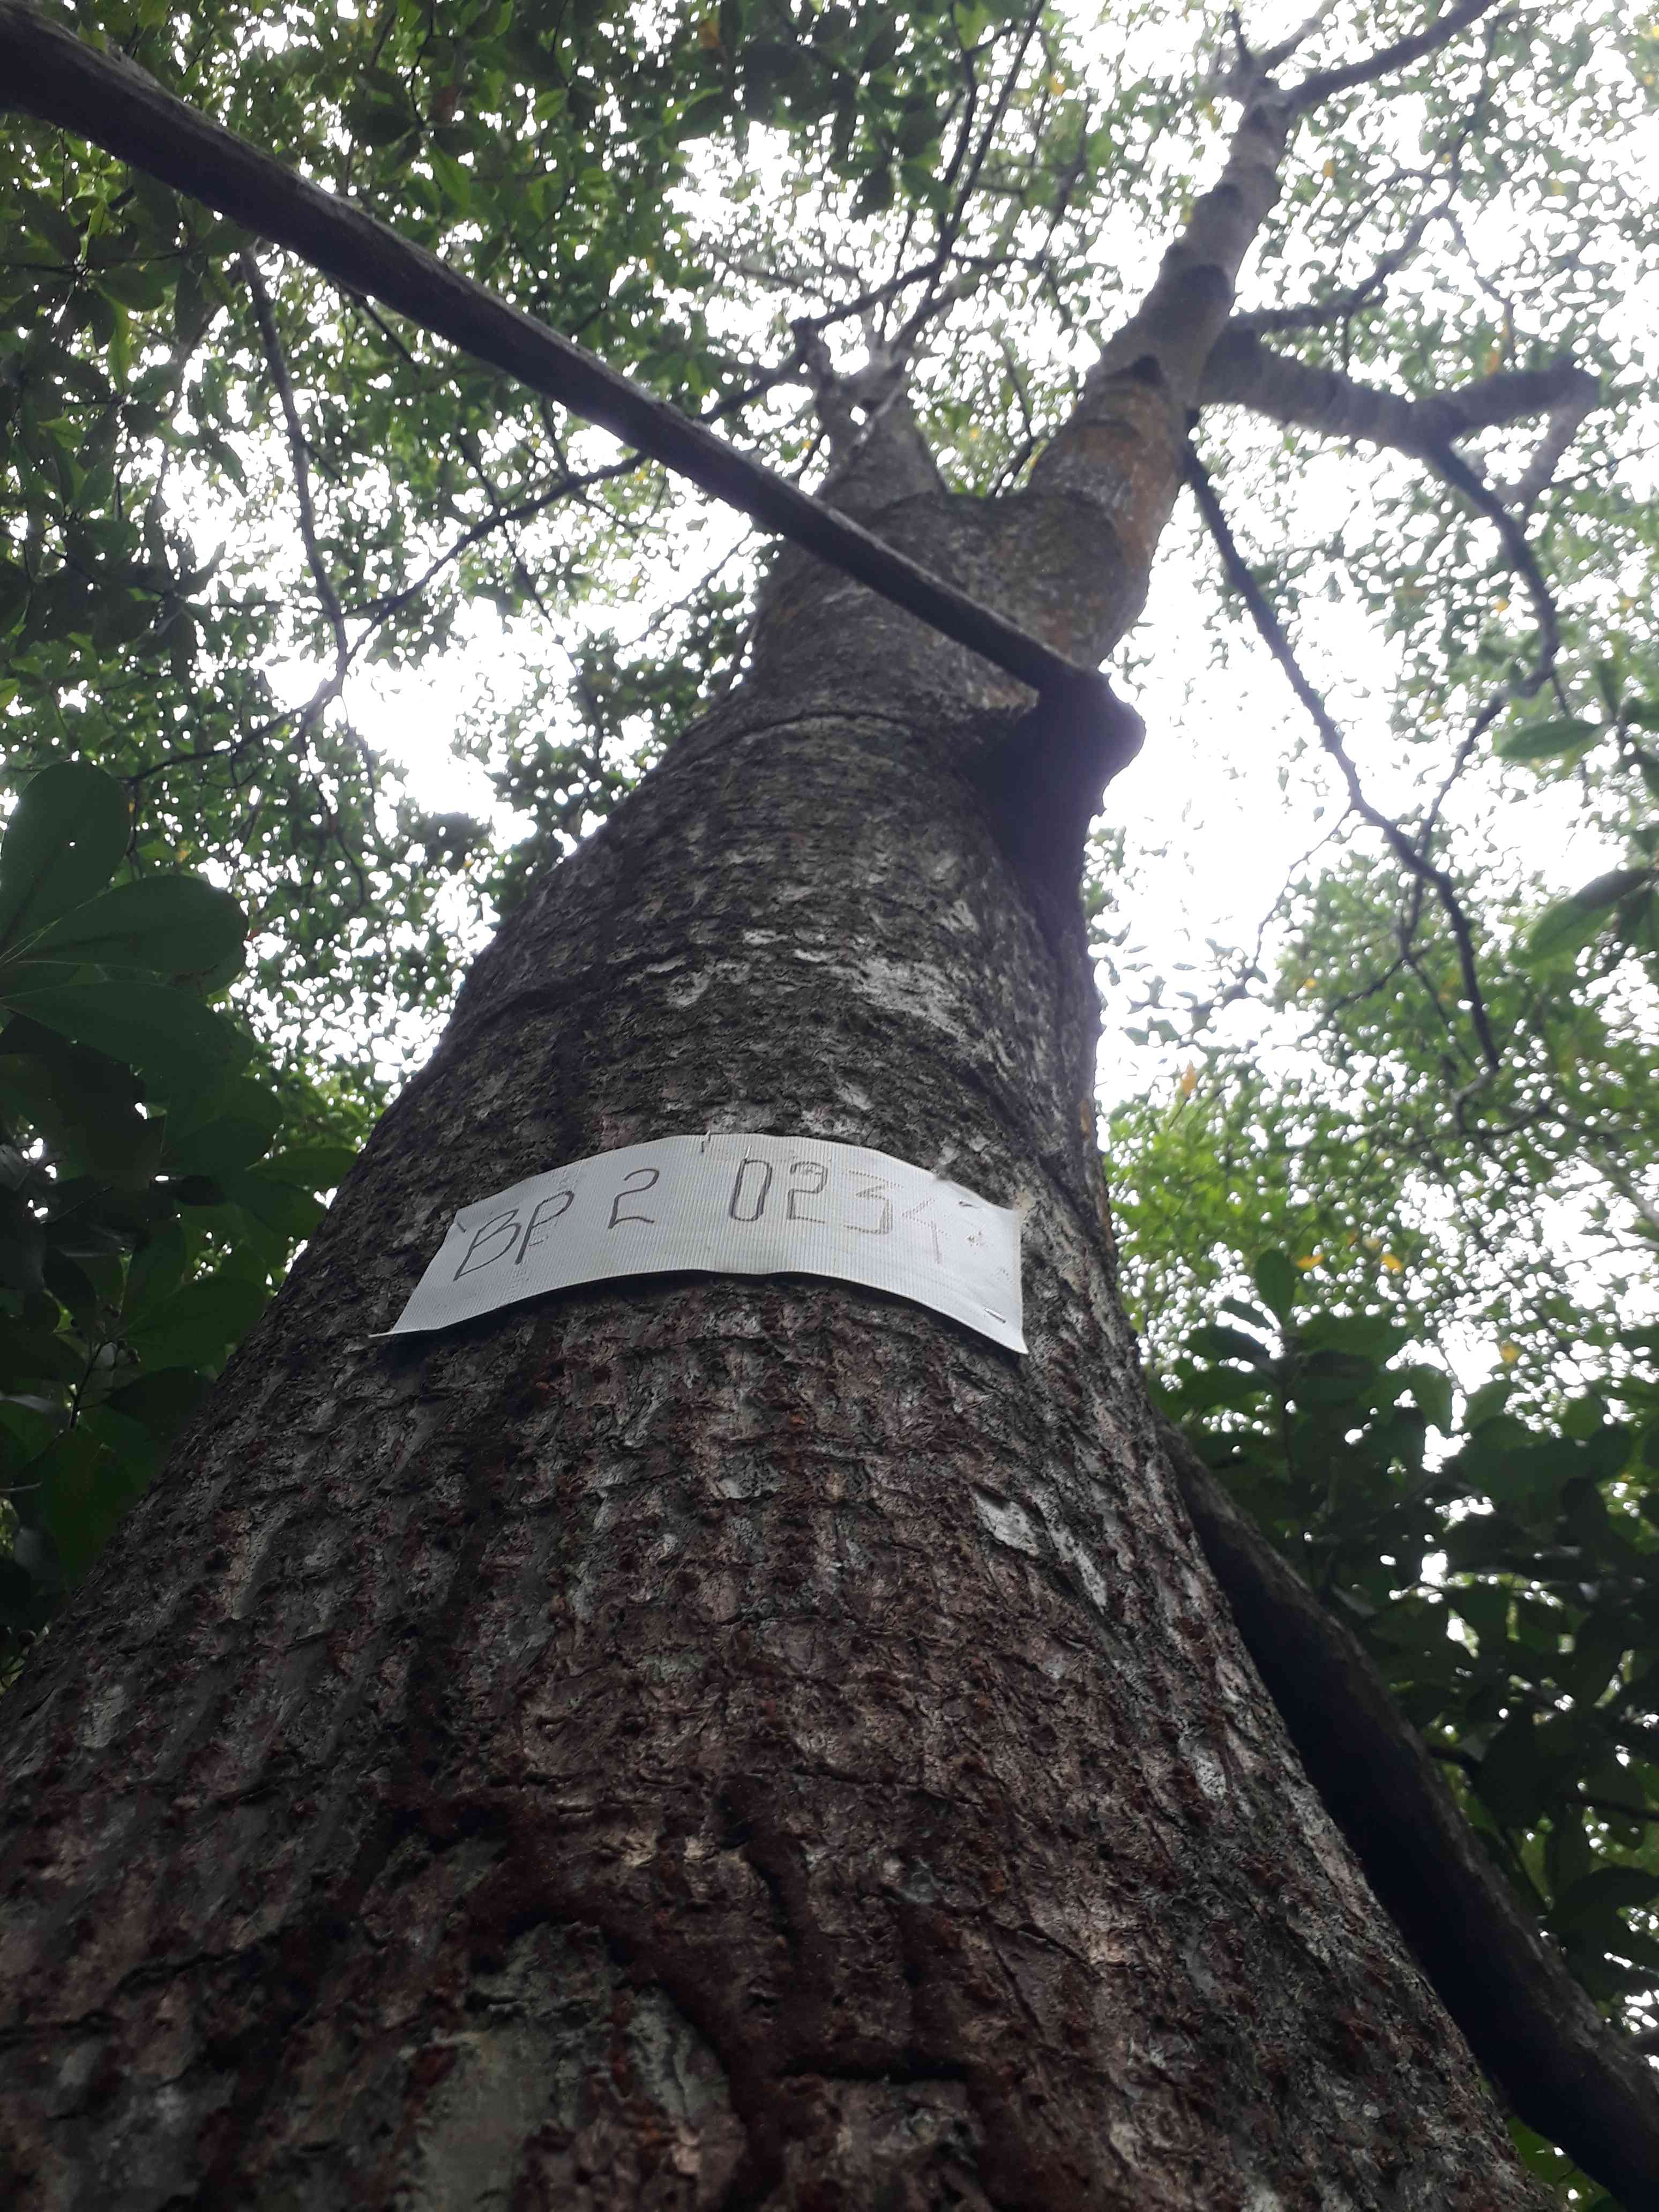 BP 2 0234